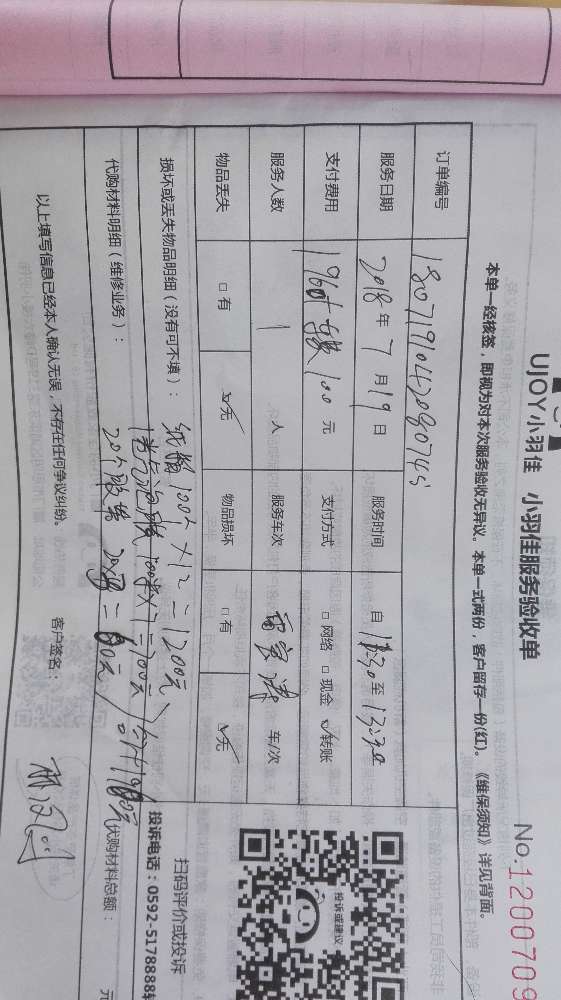 UJOY小羽佳 小羽佳服务验收单
No.1200709
本单一经核签，即视为对本次服务验收无异议。本单一式两份，客户留存一份(红)。《维保须知》详见背面。
订单编号
服务日期 2018 年 7 月 19 日 服务时间 自 至
支付费用 元 支付方式 □网络 □现金 ☑转账
服务人数 1 人 服务车次 车/次
物品丢失 □有 ☑无 物品损坏 □有 ☑无
损坏或丢失物品明细（没有可不填）： 纸箱100个×12=1200元
100米×7=700元
代购材料明细（维修业务）： 20个胶带
代购材料总额： 元
以上填写信息已经本人确认无误，不存在任何争议纠纷。 客户签名：
投诉或建议
扫码评价或投诉
投诉电话：0592-5178888转